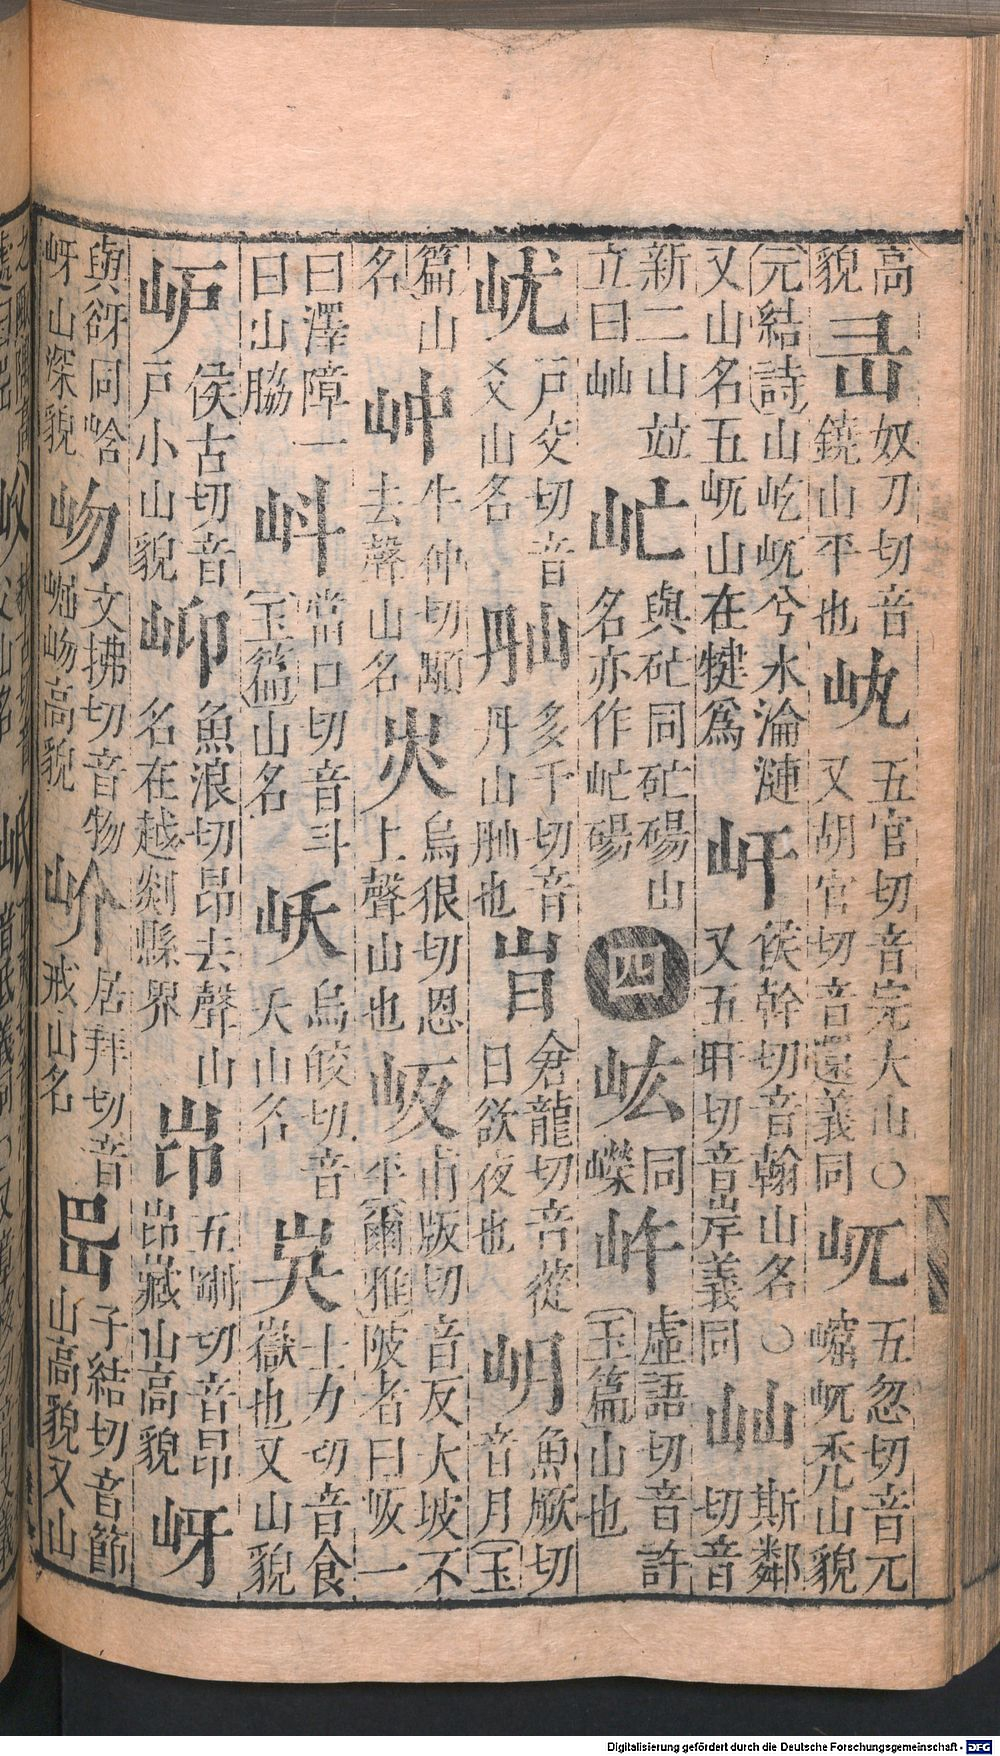 高
貌
峊 奴刀切音
鐃山平也
㞸 五官切音完大山○
又胡官切音還義同
屼 五忽切音兀
崛屼禿山貌
元結詩山屹屼兮水淪漣
又山名五屼山在犍爲
屽 侯幹切音翰山名○
又五旰切音岸義同
屾 斯鄰
切音
新二山竝
立曰屾
𡵀 與矹同矹碭山
名亦作𡵀碭
四
㞳 同
嶸
㞰 虛語切音許
玉篇山也
㞱 戶交切音
爻山名
多千切音
丹山也
㫮 倉龍切音從
日欲夜也
岄 魚厥切
音月玉
篇山
名
𡵓 牛仲切
去聲山名
烏很切恩
上聲山也
岅 甫版切音反大坡不
平爾雅陂者曰岅一
曰澤障一
曰山脇
㞳 當口切音斗
玉篇山名
岆 烏皎切音
夭山名
𡵆 士力切音食
嶽也又山貌
岵 侯古切音
戶小山貌
䒢 魚浪切昂去聲山
名在越剡縣界
岇 五剛切音昂
岇藏山高貌
岈
與谺同啥
岈山深貌
岉 文拂切音物
崛岉高貌
岕 居拜切音
戒山名
岊 子結切音節
山高貌又山
Digitalisierung gefördert durch die Deutsche Forschungsgemeinschaft - DFG